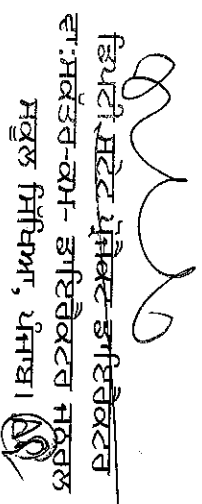 ਡਿਪਟੀ ਸਟੇਟ ਪ੍ਰੋਜੈਕਟ ਡਾਇਰੈਕਟਰ
ਦ:ਸਕੱਤਰ-ਕਮ- ਡਾਇਰੈਕਟਰ ਜਨਰਲ
ਸਕੂਲ ਸਿੱਖਿਆ, ਪੰਜਾਬ।